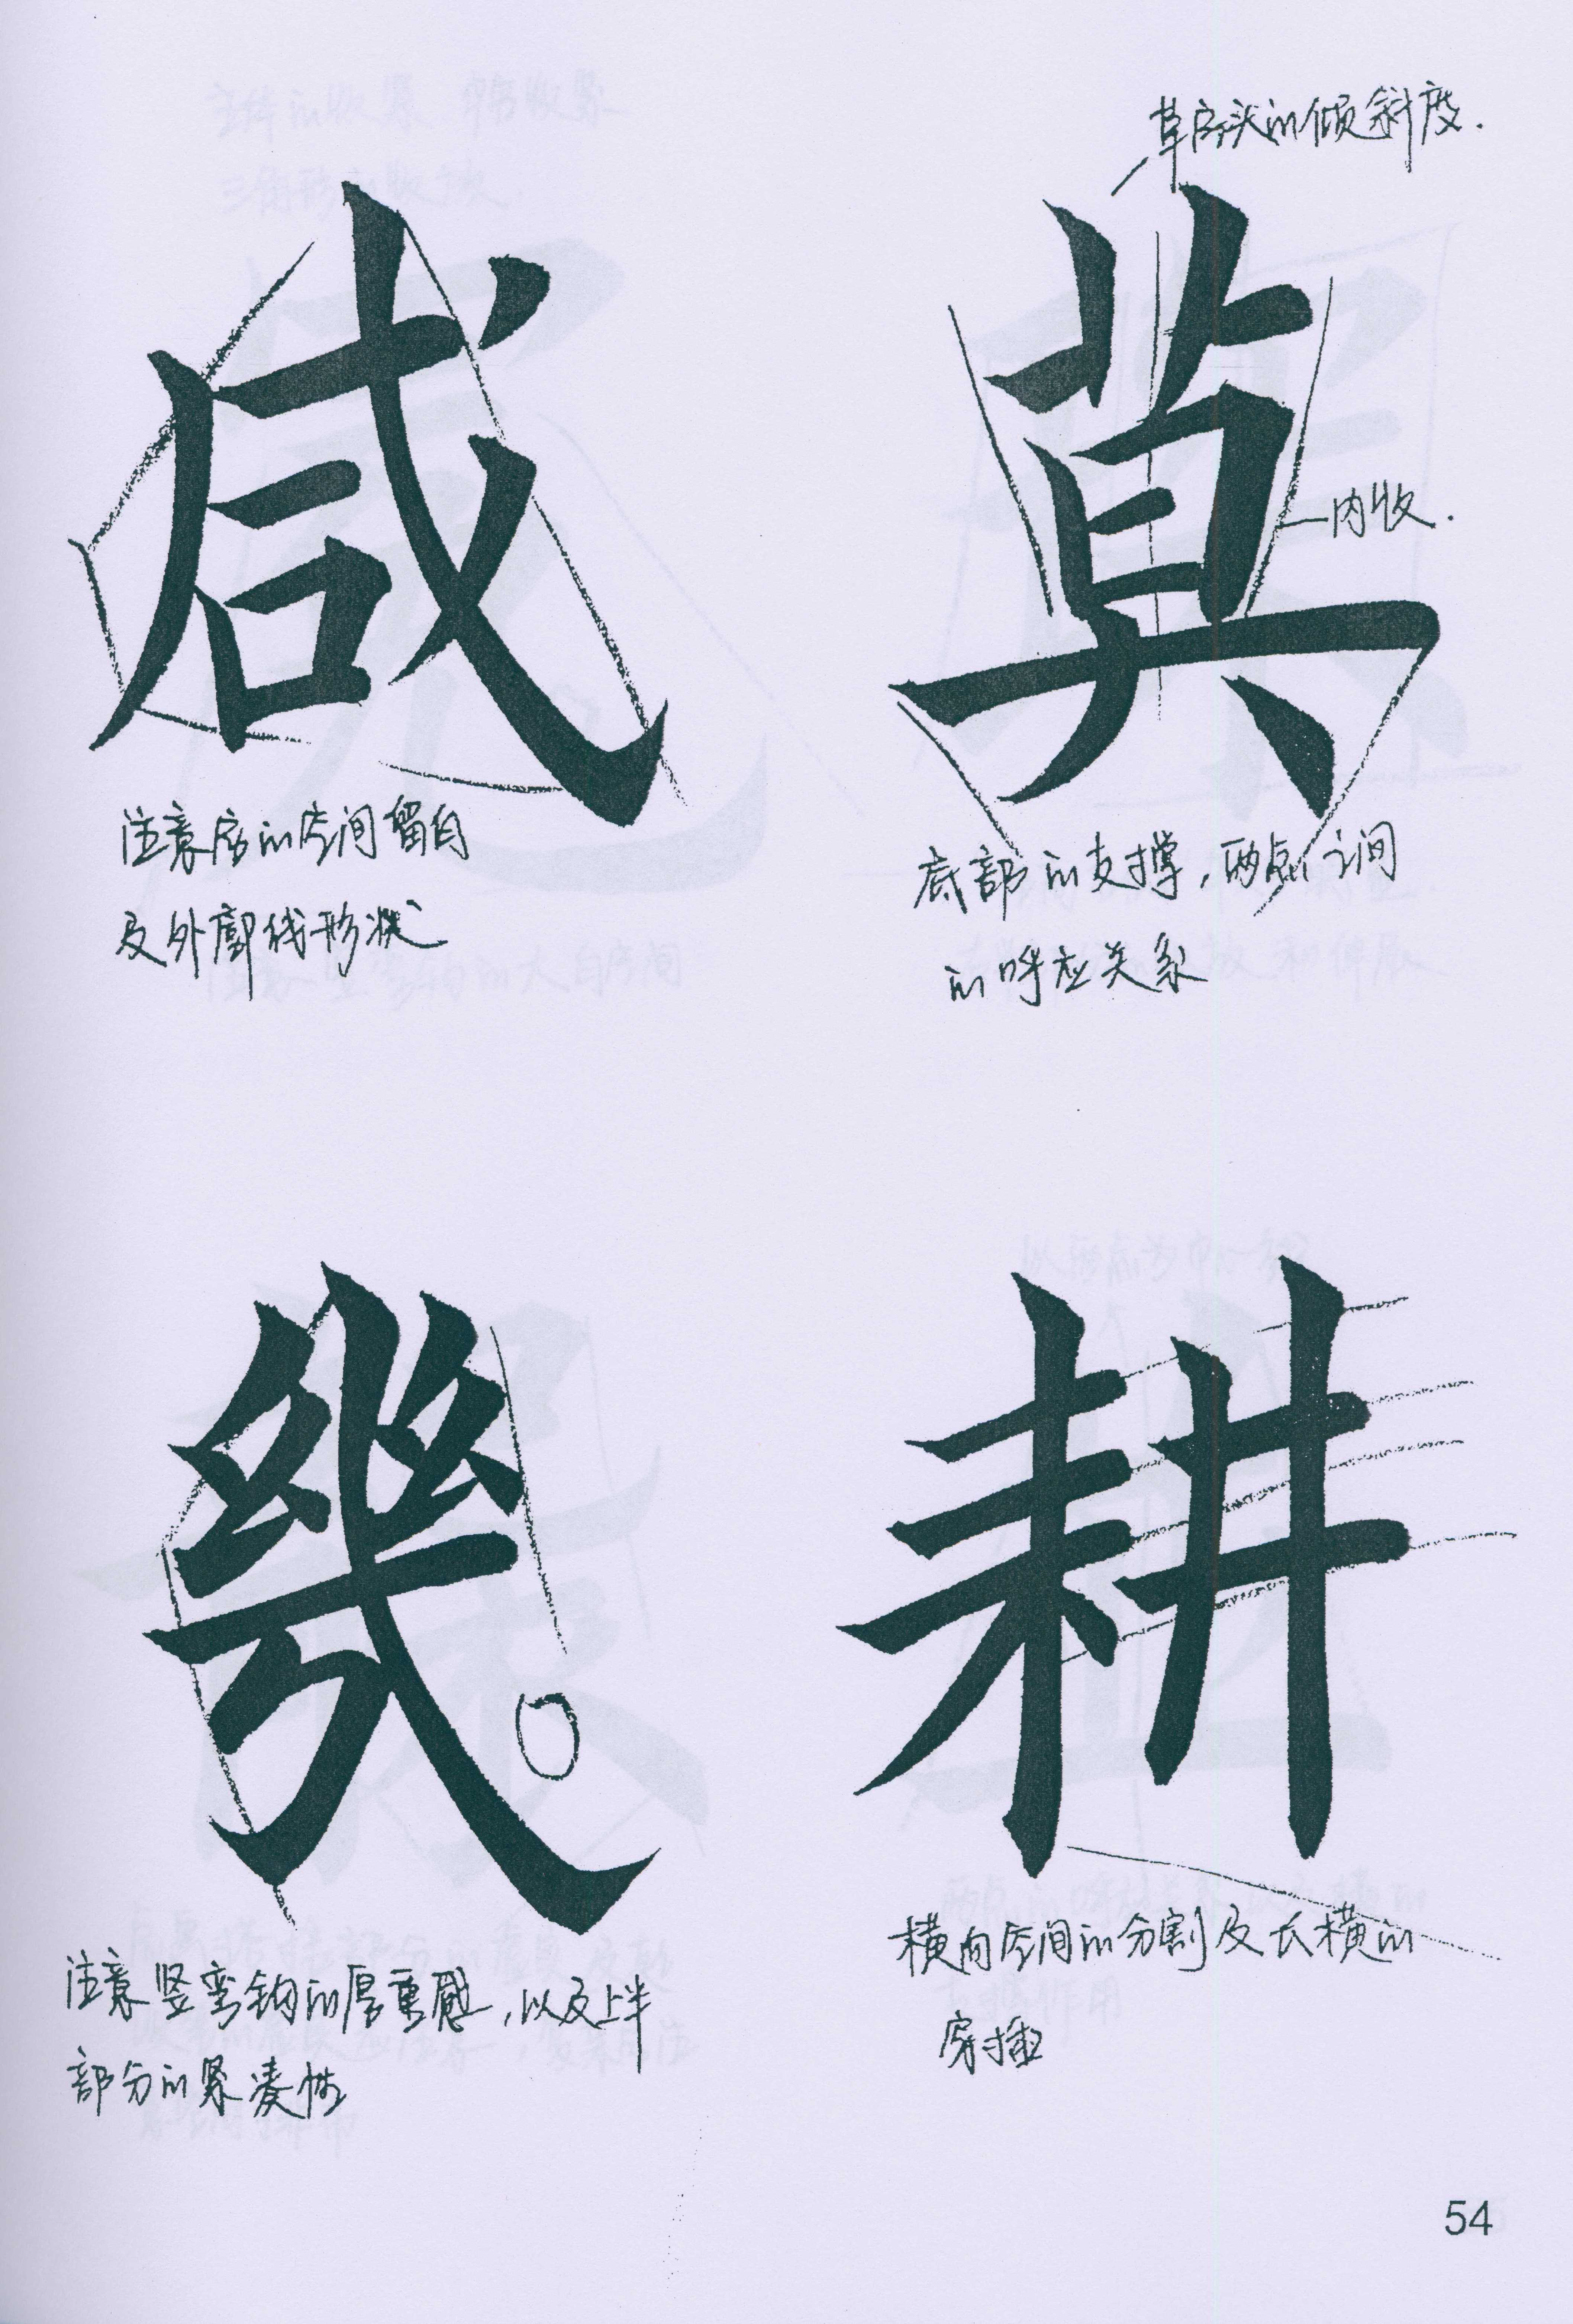 草字头的倾斜度.
咸
莫
内收.
注意字的空间留白
及外廓线形状
底部的支撑，两点之间
的呼应关系
幾
耕
注意竖弯钩的厚重感，以及上半
部分的紧凑性
横向空间的分割及长横的
穿插
54